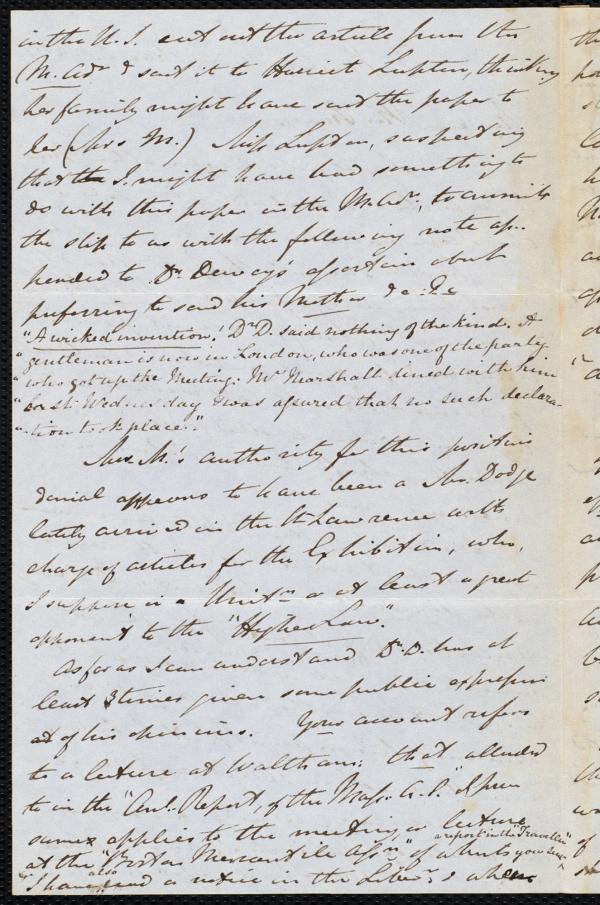 in the U.S. cut out the article from the
M. Adr & sent it to Harriet Lupton, thinking
her family might have sent the paper to
her (Mrs M.) Miss Lupton, suspecting
that the I. might have had something to
do with this paper in the M. Adr, transmits
the slip to us with the following note ap-
pended to Dr Dewey's assertain about
preferring to send his Mother &c. &c
"A wicked invention! Dr D. said nothing of the kind. A
"gentleman is now in London, who was one of the party
"who got up the Meeting: Mr Marshall dined with him
"last Wednesday & was assured that no such declara-
"-tion took place."
Mrs M.'s authority for this positive
denial appears to have been a Mr. Dodge
lately arrived in the St Lawrence with
charge of articles for the Exhibition, who,
I suppose is a Unitn or at least a great
opponent to the "Higher Law".
As far as I can understand Dr. D. has at
least 3 times given some public expression
of his opinions. Your account refers
to a lecture at Waltham: that alluded
to in the "Anl. Report, of the Mass. A.S." I pre
sume applies to the meeting or lecture
at the "Boston Mercantile Assn" of which you
a report in the "Traveller"
I have also read a notice in the Liberr & when